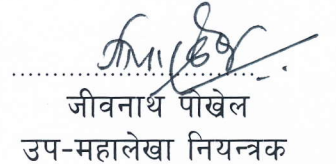 जीवनाथ पोखेल
उप-महालेखा नियन्त्रक